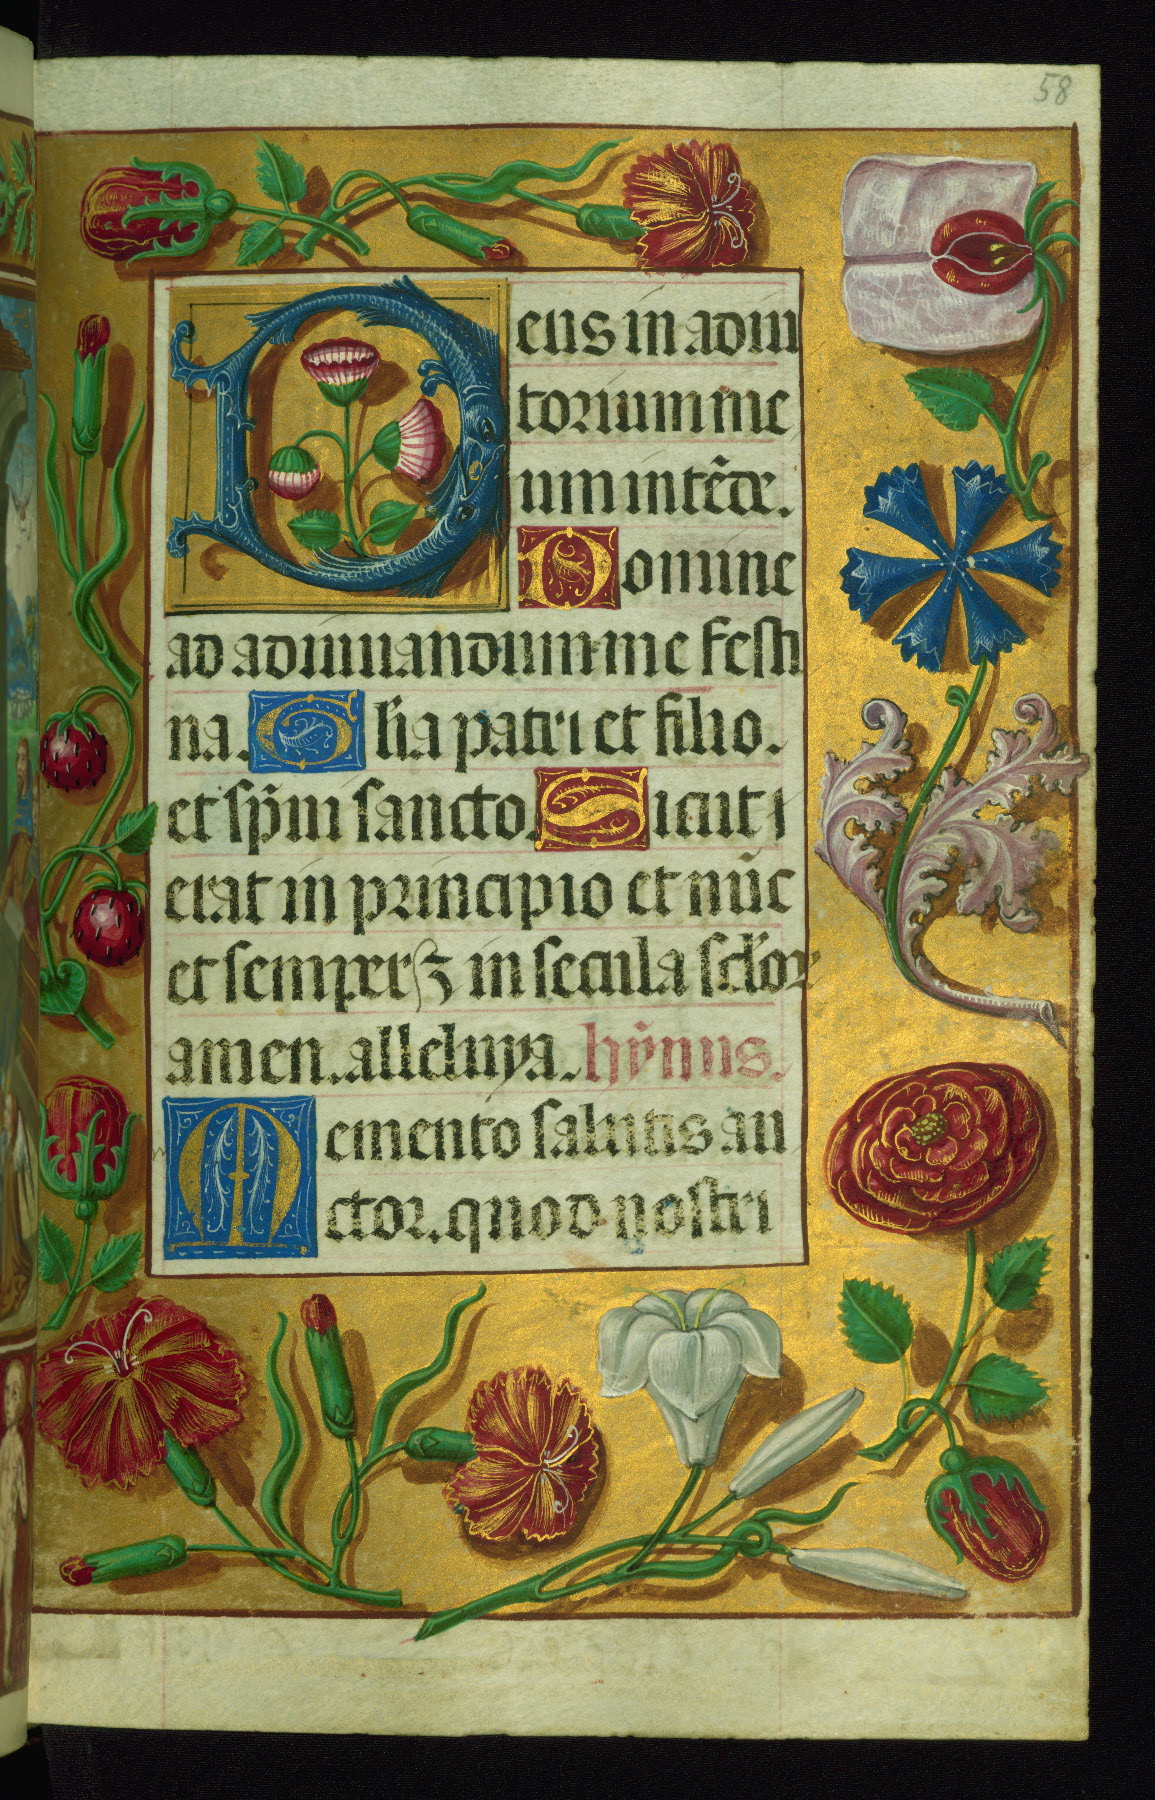 58
Deus in adiu
torium me
um intēde.
Domine
ad adiuuandum me festi
na. Glīa patri et filio.
et sp̄ui sancto. Sicut
erat in principio et nūc
et semper ꝫ in secula sc̄lorꝝ
amen. alleluya. hȳnus.
Memento salutis au
ctor. quod nostri